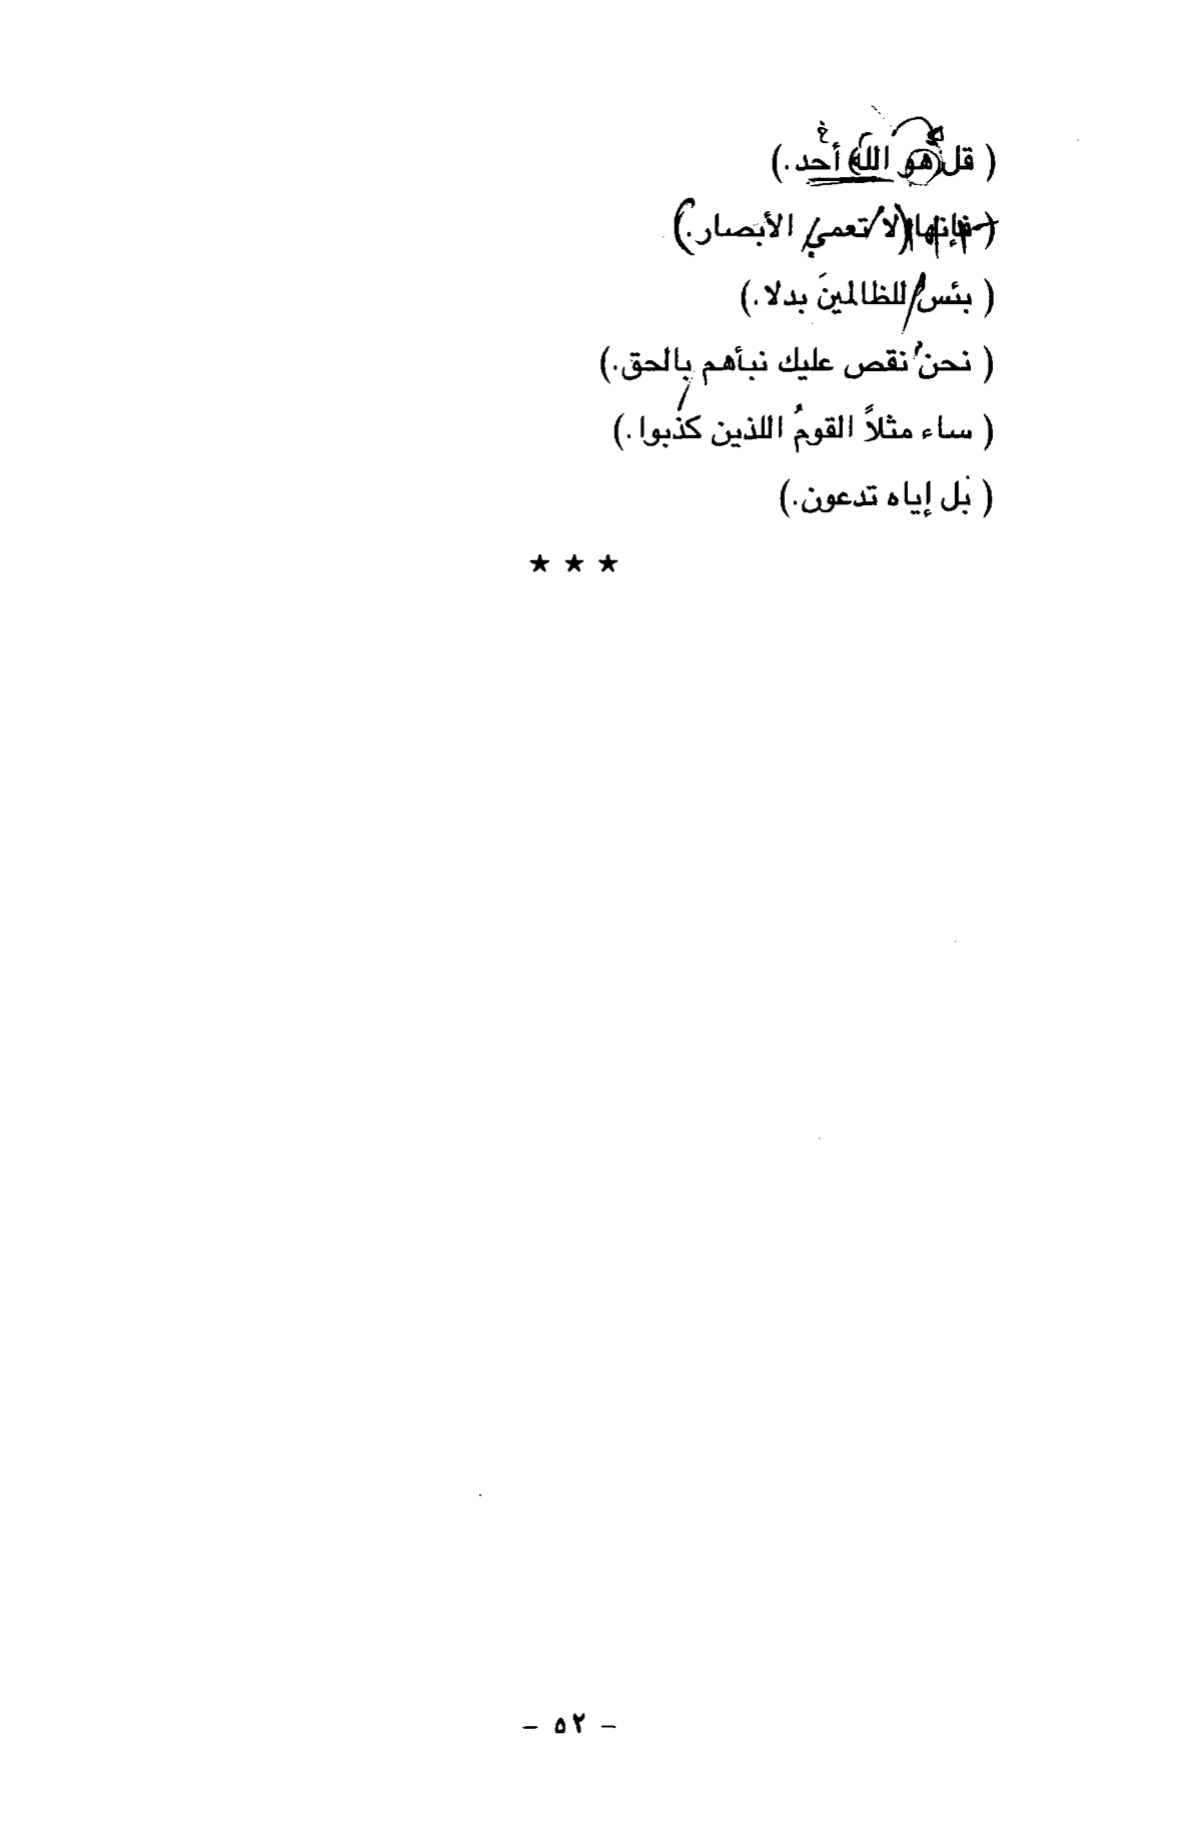 ( قل هو الله أحد .)
( فإنها لا تعمي الأبصار .)
( بئس للظالمينَ بدلا .)
( نحن نقص عليك نبأهم بالحق .)
( ساء مثلاً القومُ اللذين كذبوا .)
( بل إياه تدعون .)
★ ★ ★
– ٥٢ –